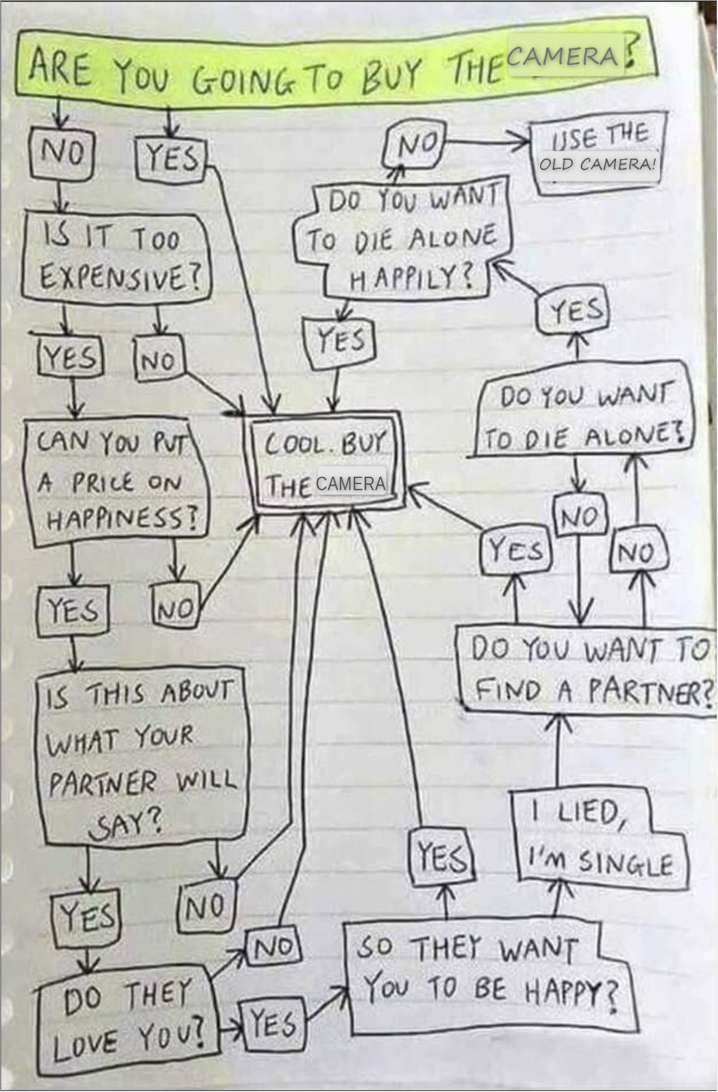 ARE YOU GOING TO BUY THE CAMERA?
NO
YES
NO
USE THE
OLD CAMERA!
IS IT TOO
EXPENSIVE?
DO YOU WANT
TO DIE ALONE
HAPPILY?
YES
NO
YES
YES
CAN YOU PUT
A PRICE ON
HAPPINESS?
COOL. BUY
THE CAMERA
DO YOU WANT
TO DIE ALONE?
YES
NO
YES
NO
NO
IS THIS ABOUT
WHAT YOUR
PARTNER WILL
SAY?
DO YOU WANT TO
FIND A PARTNER?
I LIED,
I'M SINGLE
YES
NO
YES
NO
DO THEY
LOVE YOU?
YES
SO THEY WANT
YOU TO BE HAPPY?